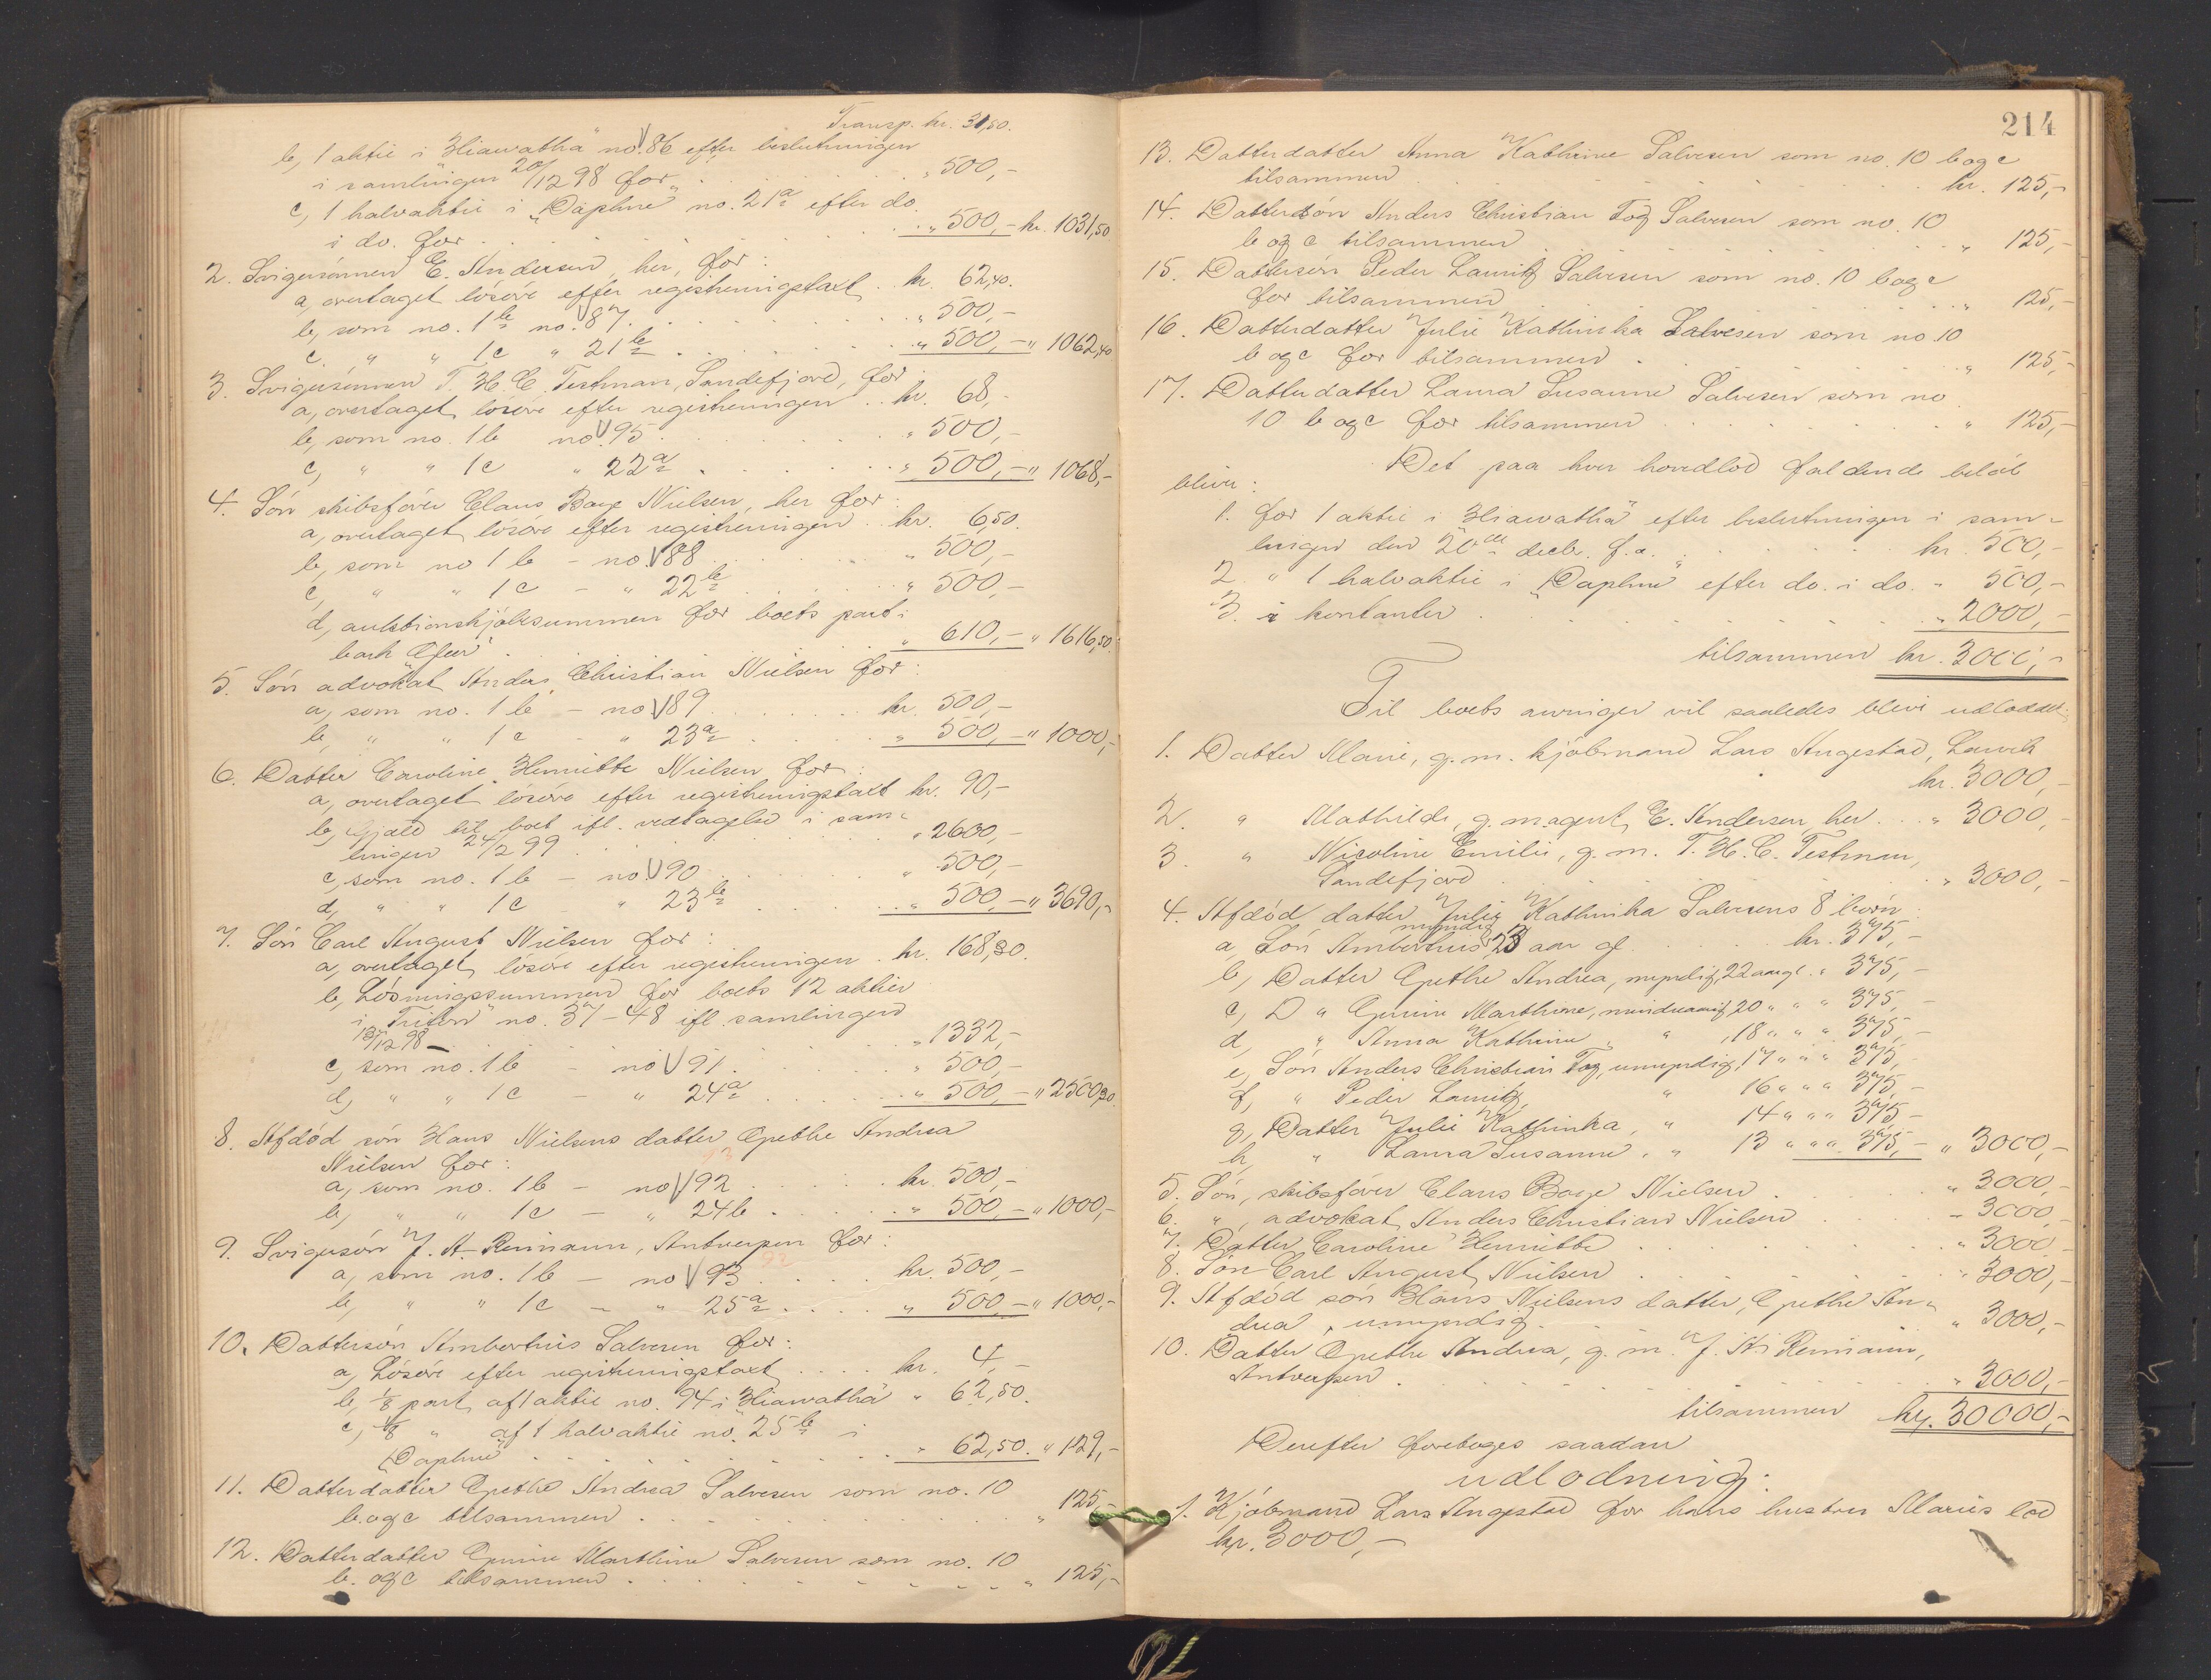 Transp. kr. 31,50.
b, 1 aktie i "Hiawatha" no. 86 efter beslutningen
i samlingen 20/12 98 for . . . " 500,-
c, 1 halvaktie i "Daphne" no. 21a efter do.
i do. for . . . " 500,- kr. 1031,50
2. Svigersönnen E. Andersen, her, for:
a, overtaget lösöre efter registreringstaxt . kr. 62,40.
b, som no. 1b no. 87 . . . " 500,-
c, " " 1c " 21b . . . " 500,- " 1062,40
3. Svigersönnen T. H. C. Testman, Sandefjord, for:
a, overtaget lösöre efter registreringen . . kr. 68,-
b, som no. 1b no. 95 . . . " 500,-
c, " " 1c " 22a . . . " 500,- " 1068,-
4. Sön skibsförer Claus Boye Nielsen, her for:
a, overtaget lösöre efter registreringen . kr. 6,50.
b, som no 1b - no. 88 . . . " 500,-
c, " " 1c - " 22b . . . " 500,-
d, auktionskjöbsummen for boets part i
bark . . . " 610,- " 1616,50.
5. Sön advokat Anders Christian Nielsen for:
a, som no. 1b - no 89 . . . kr. 500,-
b, " " 1c - " 23a . . . " 500,- " 1000,-
6. Datter Caroline Henriette Nielsen for:
a, overtaget lösöre efter registreringstaxt kr. 90,-
b, Gjæld til boet ifl. vedtagelse i sam-
lingen 24/2 99 . . . " 2600,-
c, som no. 1b - no 90 . . . " 500,-
d, " " 1c - " 23b . . . " 500,- " 3690,-
7. Sön Carl August Nielsen for:
a, overtaget lösöre efter registreringen . kr. 168,30.
b, Lösningssummen for boets 12 aktier
i "Triton" no. 37-48 ifl. samlingen
13/12 98- . . . " 1332,-
c, som no. 1b - no 91 . . . " 500,-
d, " " 1c - " 24a . . . " 500,- " 2500,30.
8. Afdöd sön Hans Nielsens datter Grethe Andrea
Nielsen for:
a, som no. 1b - no 92 . . . kr. 500,-
b, " " 1c - " 24b . . . " 500,- " 1000,-
9. Svigersön J. A. Reimann, Antwerpen for:
a, som no. 1b - no 93 . . . kr. 500,-
b, " " 1c - " 25a . . . " 500,- " 1000,-
10. Dattersön Ambortius Salvesen for:
a, Lösöre efter registreringstaxt . . . kr. 4,-
b, 1/8 part af 1 aktie no. 94 i "Hiawatha" " 62,50.
c, 1/8 " af 1 halvaktie no. 25b i
"Daphne" . . . " 62,50. " 129,-
11. Datterdatter Grethe Andrea Salvesen som no. 10
b. og c tilsammen . . . " 125,-
12. Datterdatter Gurine Marthine Salvesen som no. 10
b. og c tilsammen . . . " 125,-
214
13. Datterdatter Anna Kathrine Salvesen som no. 10 b og c
tilsammen . . . kr. 125,-
14. Dattersön Anders Christian Foy Salvesen som no. 10
b og c tilsammen . . . " 125,-
15. Dattersön Peder Lauritz Salvesen som no. 10 b og c
for tilsammen . . . " 125,-
16. Datterdatter Julie Kathinka Salvesen som no 10
b og c for tilsammen . . . " 125,-
17. Datterdatter Laura Susanne Salvesen som no
10 b og c for tilsammen . . . " 125,-
Det paa hver hovedlod faldende belöb
bliver:
1. for 1 aktie i "Hiawatha" efter beslutningen i sam-
lingen den 20de decbr. f. a. . . . kr. 500,-
2. " 1 halvaktie i "Daphne" efter do. i do. " 500,-
3. i kontanter . . . " 2000,-
tilsammen kr. 3000,-
Til boets arvinger vil saaledes blive udloddet:
1. Datter Marie, g. m. kjöbmand Lars Angestad, Laurvik
kr. 3000,-
2. " Mathilde, g. m. agent E. Andersen, her . . " 3000,-
3. " Nicoline Emilie, g. m. T. H. C. Testman,
Sandefjord . . . " 3000,-
4. Afdöd datter Julie Kathinka Salvesens 8 börn:
a, Sön Ambortius, myndig 23 aar gl. . . . kr. 375,-
b, Datter Grethe Andrea, myndig, 22 aar gl. " 375,-
c, D " Gurine Marthine, mindreaarig 20 " " " 375,-
d, " Anna Kathrine " " , 18 " " " 375,-
e, Sön Anders Christian Foy, umyndig, 17 " " " 375,-
f, " Peder Lauritz, " 16 " " " 375,-
g, Datter Julie Kathinka, " 14 " " " 375,-
h, " Laura Susanne, " 13 " " " 375,- " 3000,-
5. Sön, skibsförer Claus Boye Nielsen . . . " 3000,-
6. " , advokat Anders Christian Nielsen . . . " 3000,-
7. Datter Caroline Henriette . . . " 3000,-
8. Sön Carl August Nielsen . . . " 3000,-
9. Afdöd sön Hans Nielsens datter, Grethe An-
drea, umyndig . . . " 3000,-
10. Datter Grethe Andrea, g. m. J. A. Reimann,
Antwerpen . . . " 3000,-
tilsammen kr. 30000,-
Derefter foretoges saadan
udlodning:
1. Kjöbmand Lars Angestad for hans hustru Maries lod
kr. 3000,-